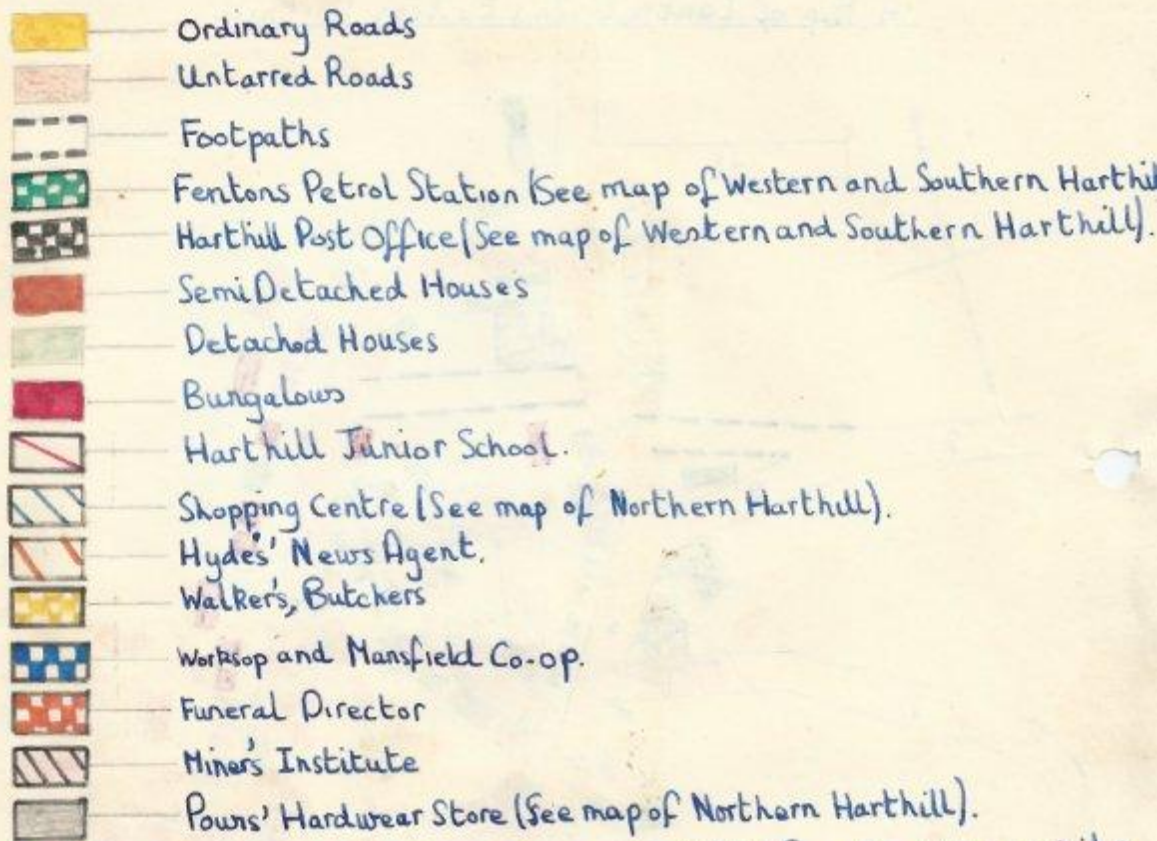 Ordinary Roads
Untarred Roads
Footpaths
Fentons Petrol Station (See map of Western and Southern Harthil
Harthill Post Office (See map of Western and Southern Harthill).
Semi Detached Houses
Detached Houses
Bungalows
Harthill Junior School.
Shopping Centre (See map of Northern Harthill).
Hydes' News Agent.
Walker's, Butchers
Worksop and Mansfield Co-op.
Funeral Director
Miner's Institute
Pouns' Hardwear Store (See map of Northern Harthill).